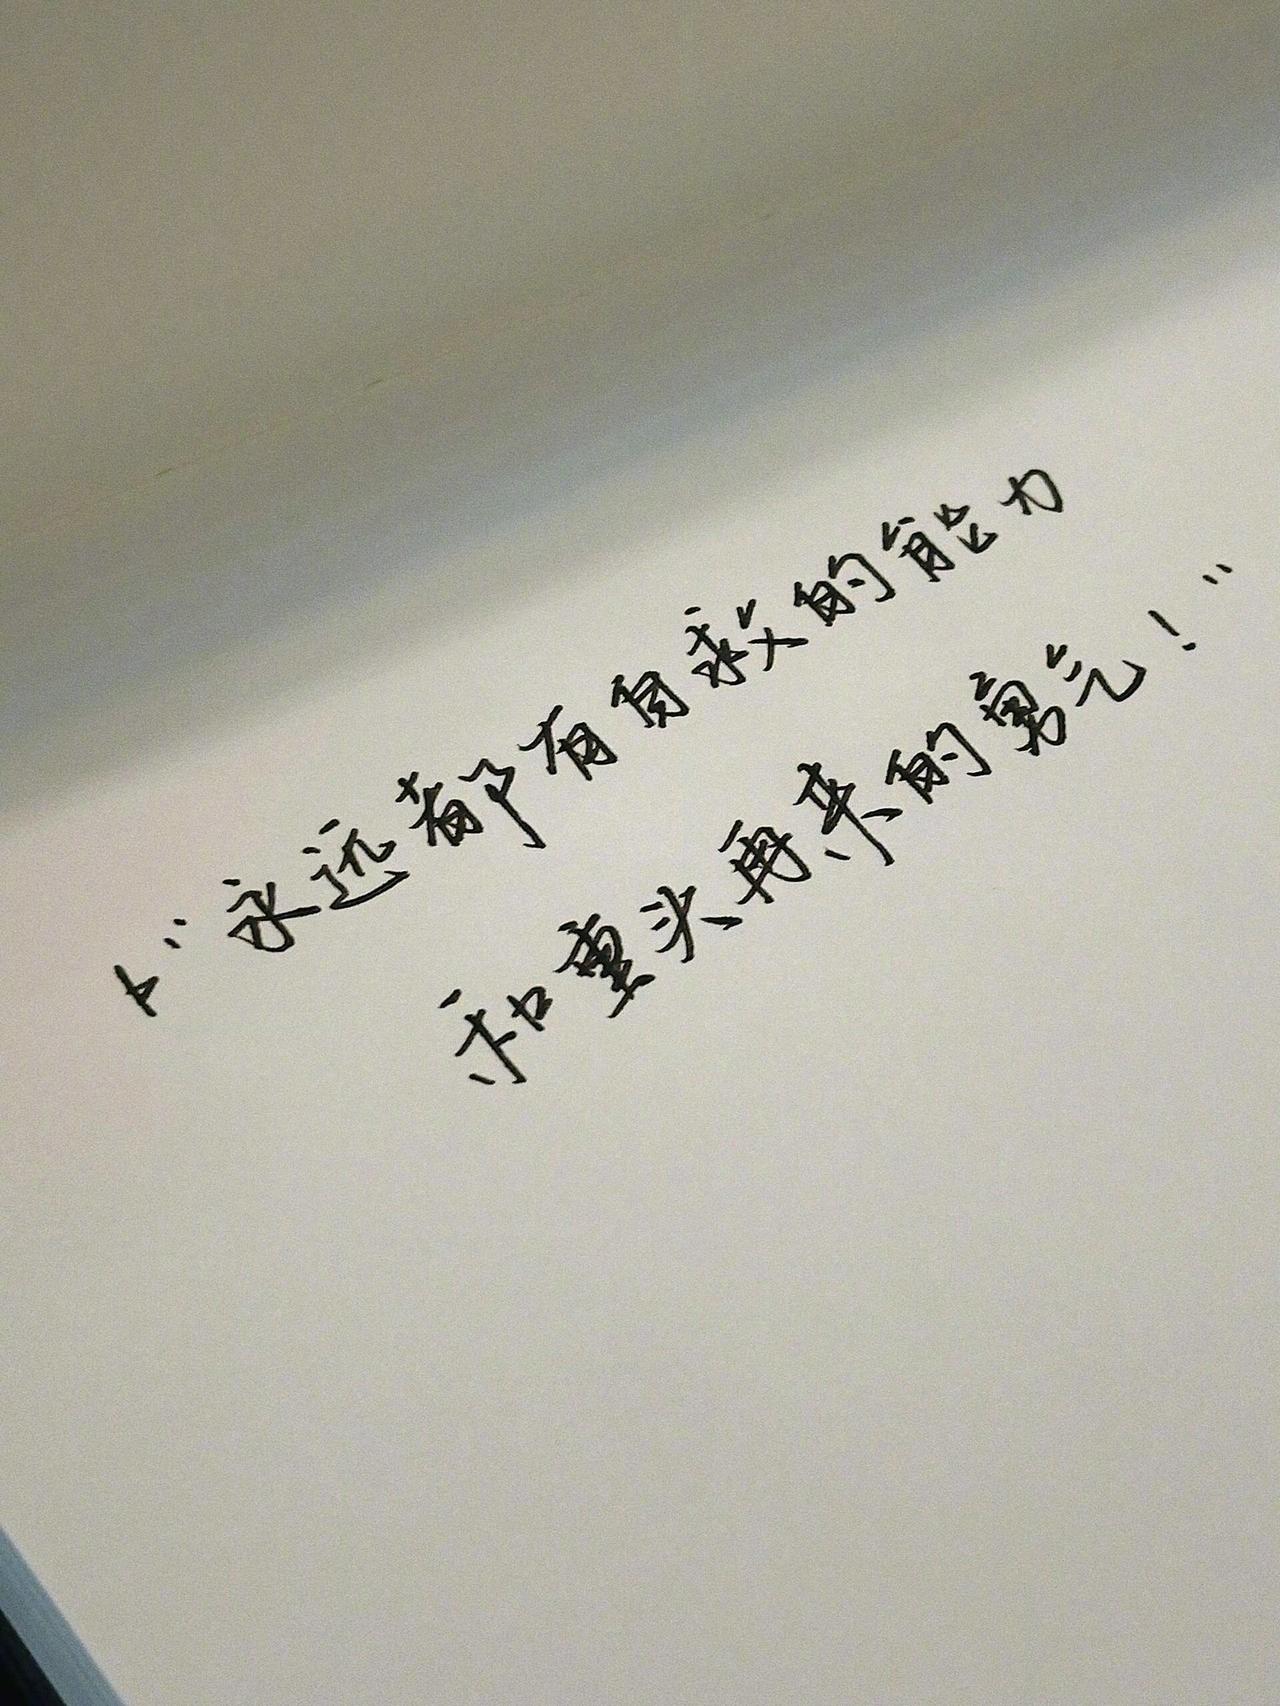 “永远都有自救的能力
和重头再来的勇气！”